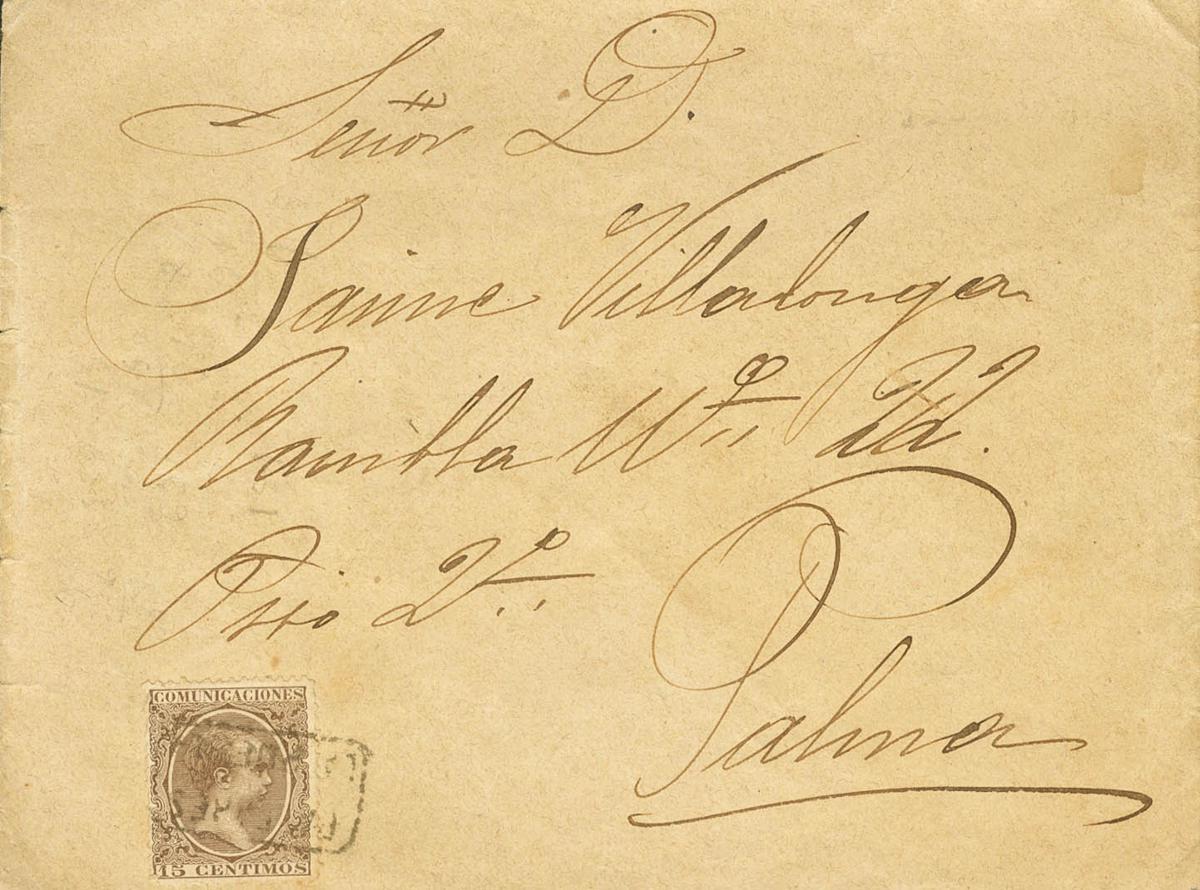 Señor D.
Jaime Villalonga
Rambla Nº 22.
Piso 2º
Palma
COMUNICACIONES
15 CENTIMOS